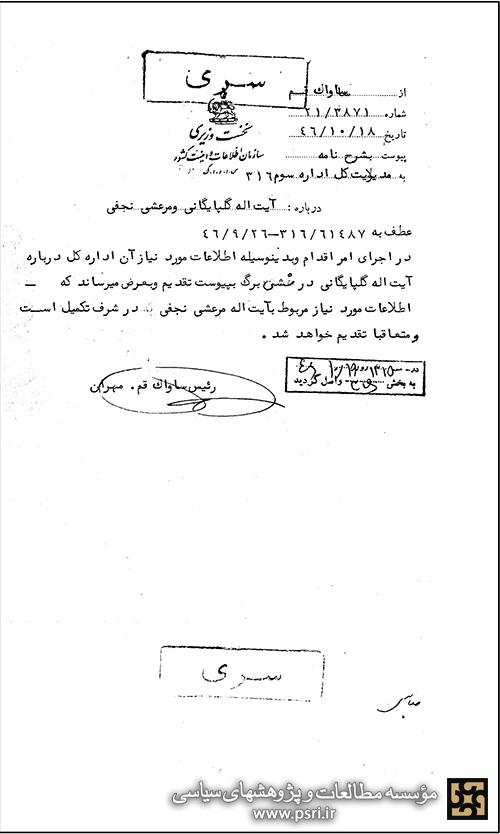 سری
از ساواک قم
شماره ۲۱/۳۸۷۱
تاریخ ۴۶/۱۰/۱۸
پیوست بشرح نامه
نخست وزیری
سازمان اطلاعات و امنیت کشور
به مدیریت کل اداره سوم ۳۱۶
درباره : آیت اله گلپایگانی ومرعشی نجفی
عطف به ۳۱۶/۶۱۴۸۷-۴۶/۹/۲۶
در اجرای امر اقدام وبدینوسیله اطلاعات مورد نیاز آن اداره کل درباره
آیت اله گلپایگانی در برگ بپیوست تقدیم وبعرض میرساند که
اطلاعات مورد نیاز مربوط بآیت اله مرعشی نجفی در شرف تکمیل است
ومتعاقبا تقدیم خواهد شد .
رئیس ساواک قم . مهران
به بخش واصل گردید
سری
مؤسسه مطالعات و پژوهشهای سیاسی
www.psri.ir